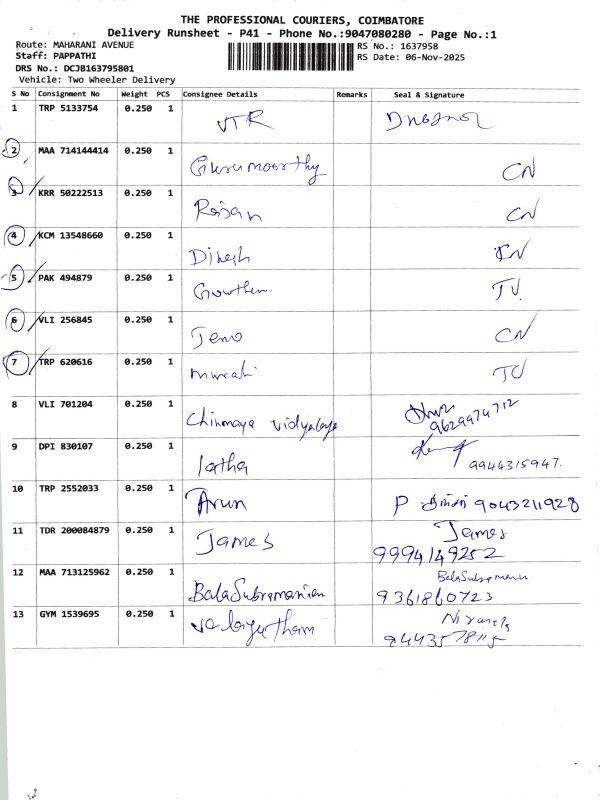 THE PROFESSIONAL COURIERS, COIMBATORE
Delivery Runsheet - P41 - Phone No.:9047080280 - Page No.:1
Route: MAHARANI AVENUE
RS No.: 1637958
Staff: PAPPATHI
RS Date: 06-Nov-2025
DRS No.: DCJB163795801
Vehicle: Two Wheeler Delivery
S No Consignment No Weight PCS Consignee Details Remarks Seal & Signature
1 TRP 5133754 0.250 1 VTR
2 MAA 714144414 0.250 1 Gurumoorthy CN
3 KRR 50222513 0.250 1 Rajan CN
4 KCM 13548660 0.250 1 Dinesh CN
5 PAK 494879 0.250 1 Gowthem TV
6 VLI 256845 0.250 1 Jeno CN
7 TRP 620616 0.250 1 murali TV
8 VLI 701204 0.250 1 Chinmaya vidyalaya
9629974712
9 DPI 830107 0.250 1 latha
9944315947.
10 TRP 2552033 0.250 1 Arun P 9043211928
11 TDR 200084879 0.250 1 James James
9994149252
12 MAA 713125962 0.250 1 BalaSubramanian
9361860723
13 GYM 1539695 0.250 1